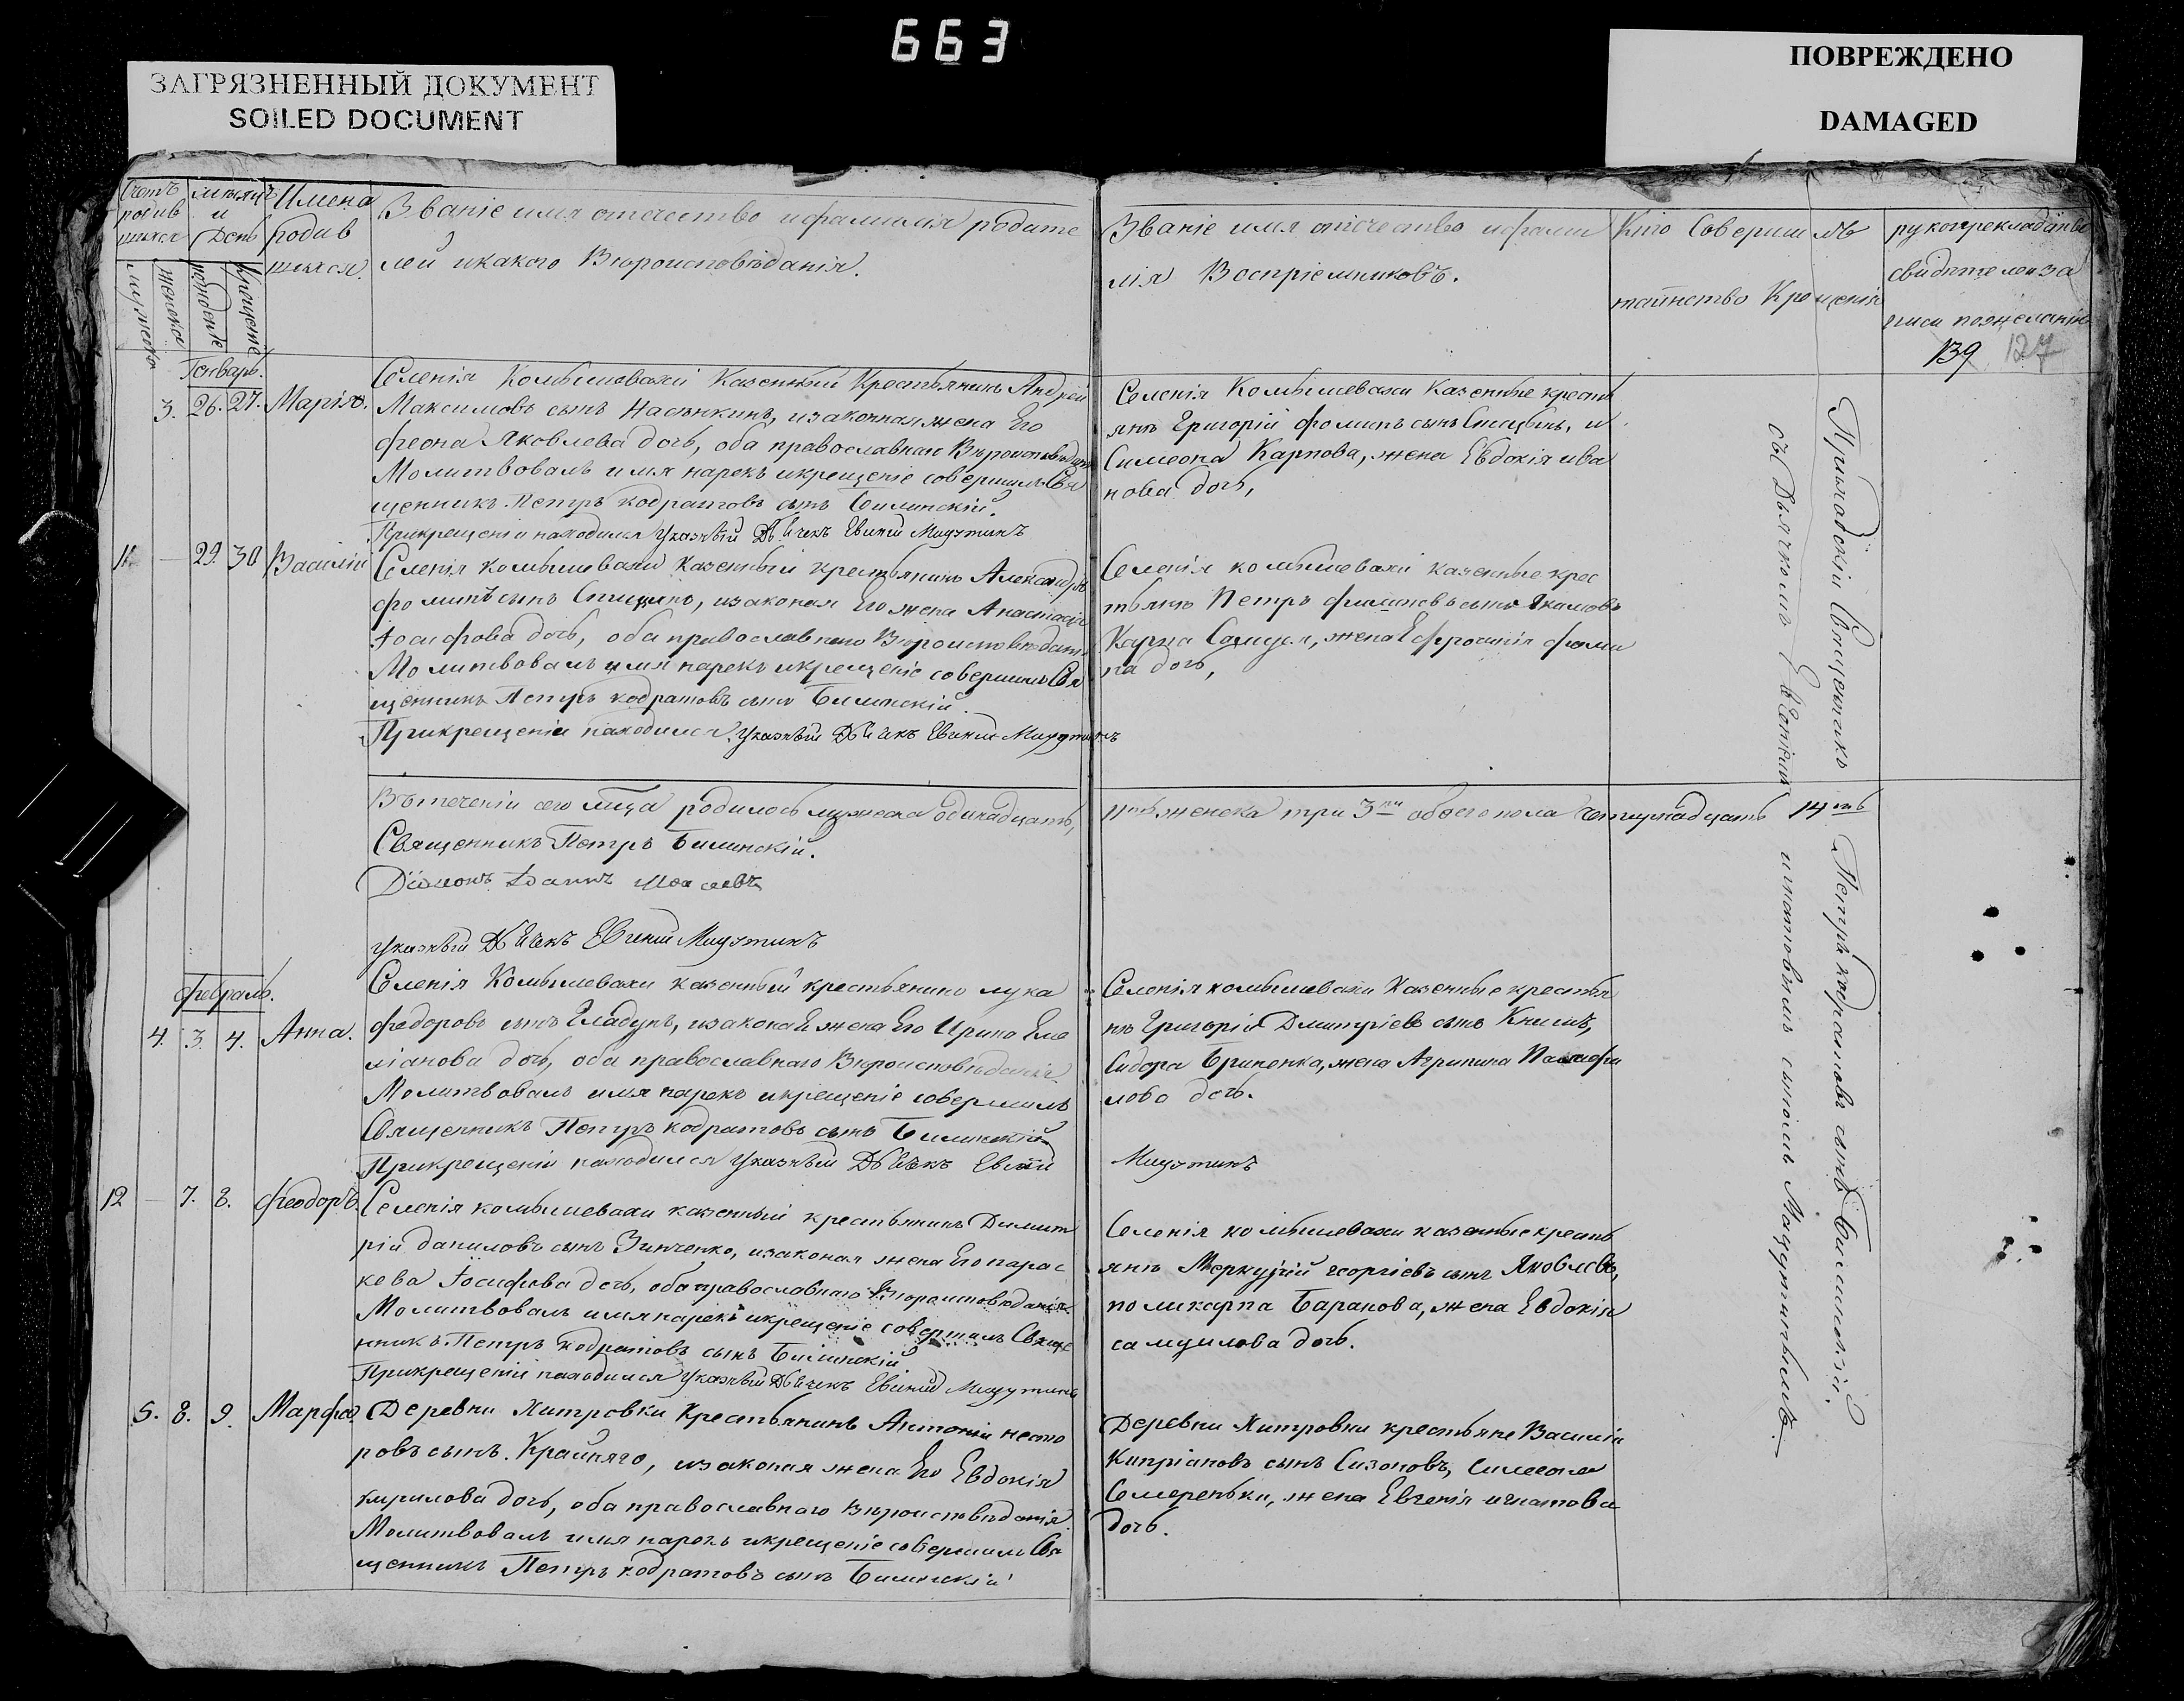 663
ЗАГРЯЗНЕННЫЙ ДОКУМЕНТ
SOILED DOCUMENT
ПОВРЕЖДЕНО
DAMAGED
Счетъ родив шихся
мужеска
женска
и День
рожденіе
крещеніе
Имена
родив
шихся.
Званіе имя отечество и фамилія родите
лей и какого Вѣроисповѣданія.
Званіе имя отечество и фами
лія Воспріемниковъ.
Кто Совершилъ
таинство Крещенія
рукоприкладство
свидѣтелей за
писи по желанію
139 127
Генварь.
3. 26. 27. Марія.
Селенія Комышевахи Казенный Крестьянинъ Андрей
Максимовъ сынъ Насѣнкинъ, изаконная жена Его
феона Яковлева дочь, оба православнаго Вѣроисповѣданія
Молитвовалъ имя нарекъ икрещеніе совершилъ Свя
щенникъ Петръ кодратовъ сынъ Билинскій.
Прикрещеніи находился Указный Дьячекъ Евгеній Мидутинъ
Селенія Комышевахи Казенные кресть
яне Григорій фоминъ сынъ Спицынъ, и
Симеона Карпова, жена Евдокія ива
нова дочь,
11. — 29. 30 Василій
Селенія комышевахи Казенный крестьянинъ Александръ
фоминъ сынъ Спицынъ, изаконая Его жена Анастасія
Іосифова дочь, оба православнаго Вѣроисповѣданія
Молитвовалъ имя нарекъ икрещеніе совершилъ Свя
щенникъ Петръ кодратовъ сынъ Билинскій.
Прикрещеніи находился Указный Дьячекъ Евгеній Мидутинъ
Селенія комышевахи казенные крес
тьяне Петръ сынъ
Карпа жена Ефросинія фоми
на дочь,
Вътеченіи сего мѣсяца родилось мужеска одинадцать,
11ть женска три 3ри обоего пола четырнадцать 14ть
Священникъ Петръ Билинскій.
Діаконъ Іоаннъ
Указный Дьячекъ Евгеній Мидутинъ
февраль.
4. 3. 4. Анна.
Селенія Комышевахи казенный крестьянинъ лука
федоровъ сынъ Гладунъ, изаконая жена Его Ирина Еме
ліанова дочь, оба православнаго Вѣроисповѣданія
Молитвовалъ имя нарекъ икрещеніе совершилъ
Священникъ Петръ кодратовъ сынъ Билинскій
Прикрещеніи находился Указный Дьячекъ Евгеній
Мидутинъ
Селенія комышевахи Казенные крестья
не Григорій Дмитріевъ сынъ Книшъ,
Сидора Гриненка, жена Агрипина
лова дочь.
12 — 7. 8. феодоръ.
Селенія комышевахи казенный крестьянинъ Димит
рій даниловъ сынъ Зинченко, изаконая жена Его парас
кева Іосифова дочь, оба православнаго Вѣроисповѣданія
Молитвовалъ имя нарекъ икрещеніе совершилъ Свяще
нникъ Петръ кодратовъ сынъ Билинскій.
Прикрещеніи находился Указный Дьячекъ Евгеній Мидутинъ
Селенія комышевахи казенные кресть
яне Меркурій георгіевъ сынъ Яковлевъ,
поликарпа Баранова, жена Евдокія
самуилова дочь.
5. 8. 9. Марфа.
Деревни Хитровки Крестьянинъ Антоній несто
ровъ сынъ Крайняго, изаконая жена Его Евдокія
кирилова дочь, оба православнаго Вѣроисповѣданія
Молитвовалъ имя нарекъ икрещеніе совершилъ Свя
щенникъ Петръ кодратовъ сынъ Билинскій
Деревни Хитровки крестьяне Василій
Кипріановъ сынъ Сизоновъ, Симеона
Семереньки, жена Евгенія игнатова
дочь.
Приходскій Священникъ Петръ кодратовъ сынъ Билинскій.
съ Дьячкомъ Евгеніемъ игнатовымъ сыномъ Мидутинымъ.